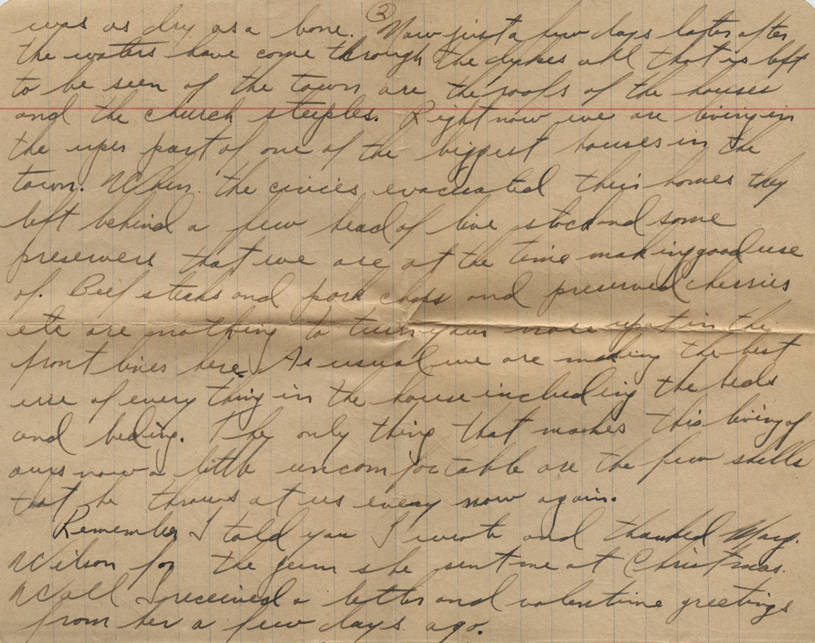 ②
was as dry as a bone. Now just a few days later after
the waters have come through the dykes all that is left
to be seen of the town are the roofs of the houses
and the church steeples. Right now we are living in
the uper part of one of the biggest houses in the
town. When the civies evacuated their homes they
left behind a few head of live stock and some
preservers that we are at the time making good use
of. Beef steaks and pork chops and preserved cherries
etc are nothing to turn your nose up at in the
front lines here. As usual we are making the best
use of every thing in the house including the beds
and beding. The only thing that makes this living of
ours now a little uncomfortable are the few shells
that he throws at us every now again.
Remember I told you I wrote and thanked Mary.
Wilson for the gum she sent me at Christmas.
Well I received a letter and valentine greetings
from her a few days ago.